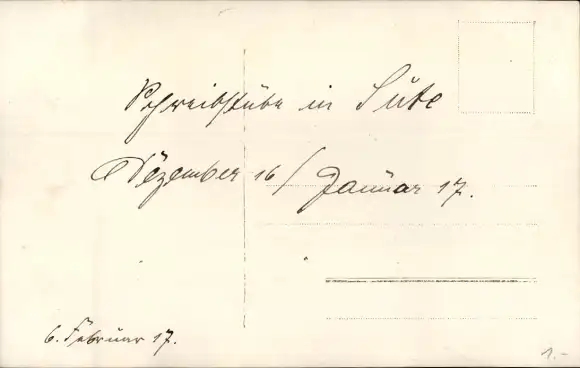 Schreibstube in Süte
Dezember 16/Januar 17.
6. Februar 17.
1.-